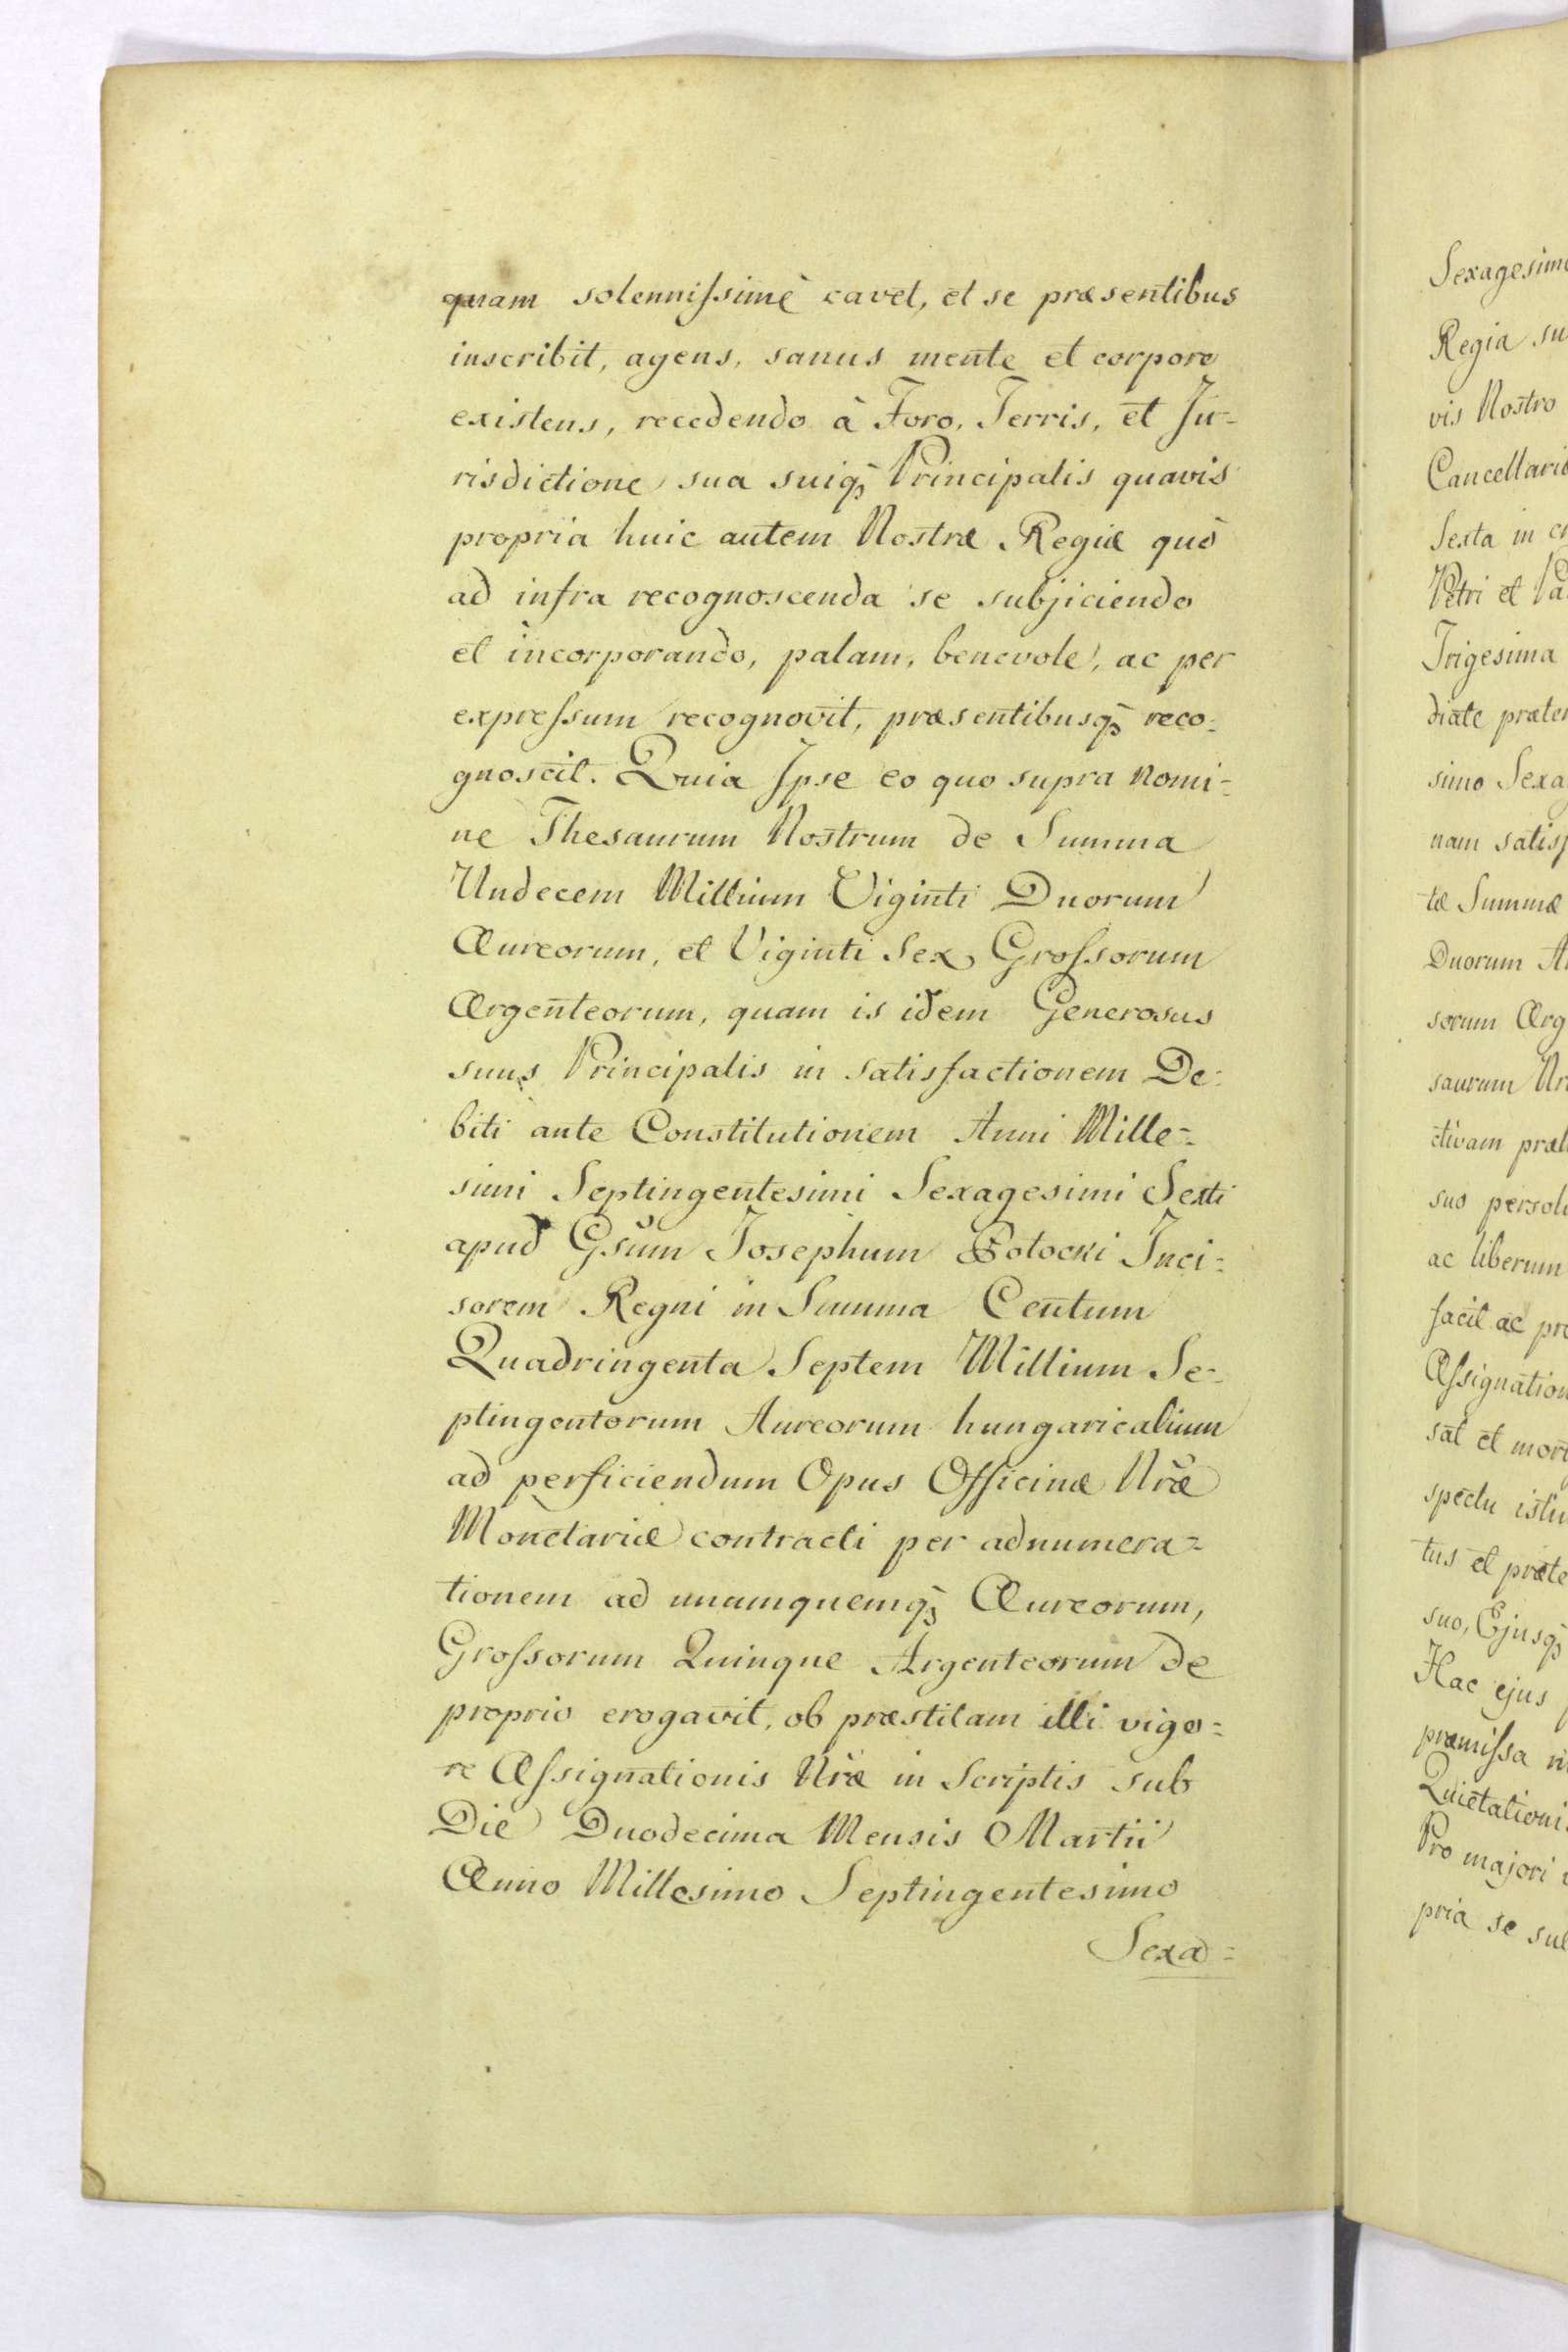 quam solennissimè cavet, et se præsentibus
inscribit, agens, sanus mente et corpore
existens, recedendo à Foro, Terris, et Ju-
risdictione sua suiq3 Principalis quavis
propria huic autem Nostræ Regiæ quò
ad infra recognoscenda se subjiciendo
et incorporando, palam, benevole, ac per
expressum recognovit, præsentibusq3 reco-
gnoscit. Quia Ipse eo quo supra nomi-
ne Thesaurum Nostrum de Summa
Undecem Millium Viginti Duorum
Aureorum, et Viginti Sex Grossorum
Argenteorum, quam is idem Generosus
suus Principalis in satisfactionem De-
biti ante Constitutionem Anni Mille-
simi Septingentesimi Sexagesimi Sexti
apud Gsum Josephum Potocki Inci-
sorem Regni in Summa Centum
Quadringenta Septem Millium Se-
ptingentorum Aureorum hungaricalium
ad perficiendum Opus Officinæ Nræ
Monetariæ contracti per adnumera-
tionem ad unumquemq3 Aureorum,
Grossorum Quinque Argenteorum de
proprio erogavit, ob præstitam illi vigo-
re Assignationis Nræ in Scriptis sub
Die Duodecima Mensis Martii
Anno Millesimo Septingentesimo
Sexa-
Sexagesimo
Regia su
vis Nostro
Cancellari
Sexta in cr
Petri et Pa
Trigesima
diate præter
simo Sexa
nam satisf
tæ Summæ
Duorum A
sorum Arg
saurum Nr
ctivam præ
suo persol
ac liberum
facit ac pr
Assignation
sat et mor
spectu istiu
tus et præte
suo, Ejusq3
Hac ejus
præmissa n
Quietationi
Pro majori
pria se sub